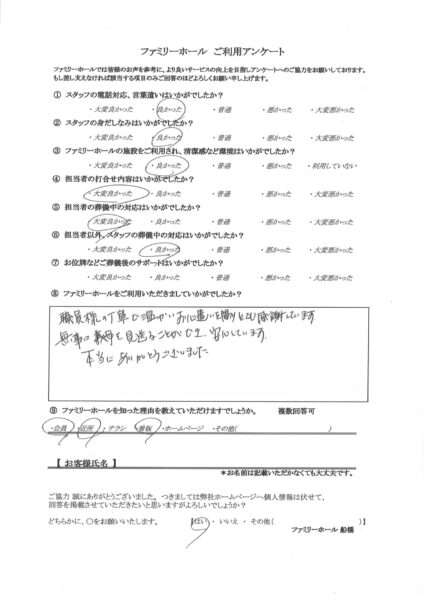 ファミリーホール　ご利用アンケート
ファミリーホールでは皆様のお声を参考に、より良いサービスの向上を目指しアンケートへのご協力をお願いしております。
もし差し支えなければ該当する項目のみご回答のほどよろしくお願い申し上げます。
① スタッフの電話対応、言葉遣いはいかがでしたか？
・大変良かった　・良かった　・普通　・悪かった　・大変悪かった
② スタッフの身だしなみはいかがでしたか？
・大変良かった　・良かった　・普通　・悪かった　・大変悪かった
③ ファミリーホールの施設をご利用され、清潔感など環境はいかがでしたか？
・大変良かった　・良かった　・普通　・悪かった　・利用していない
④ 担当者の打合せ内容はいかがでしたか？
・大変良かった　・良かった　・普通　・悪かった　・大変悪かった
⑤ 担当者の葬儀中の対応はいかがでしたか？
・大変良かった　・良かった　・普通　・悪かった　・大変悪かった
⑥ 担当者以外、スタッフの葬儀中の対応はいかがでしたか？
・大変良かった　・良かった　・普通　・悪かった　・大変悪かった
⑦ お位牌などご葬儀後のサポートはいかがでしたか？
・大変良かった　・良かった　・普通　・悪かった　・大変悪かった
⑧ ファミリーホールをご利用いただきましていかがでしたか？
職員様の丁寧で温かいお心遣いを 感謝しています
無事に義母を見送ることができ、安心しています。
本当にありがとうございました
⑨ ファミリーホールを知った理由を教えていただけますでしょうか。　複数回答可
・会員　・近所　・チラシ　・看板　・ホームページ　・その他(　)
【 お客様氏名 】
＊お名前は記載いただかなくても大丈夫です。
ご協力 誠にありがとうございました。つきましては弊社ホームページへ個人情報は伏せて、
回答を掲載させていただきたいと思いますがよろしいでしょうか？
どちらかに、〇をお願いいたします。　【はい ・ いいえ ・ その他(　)】
ファミリーホール 船橋